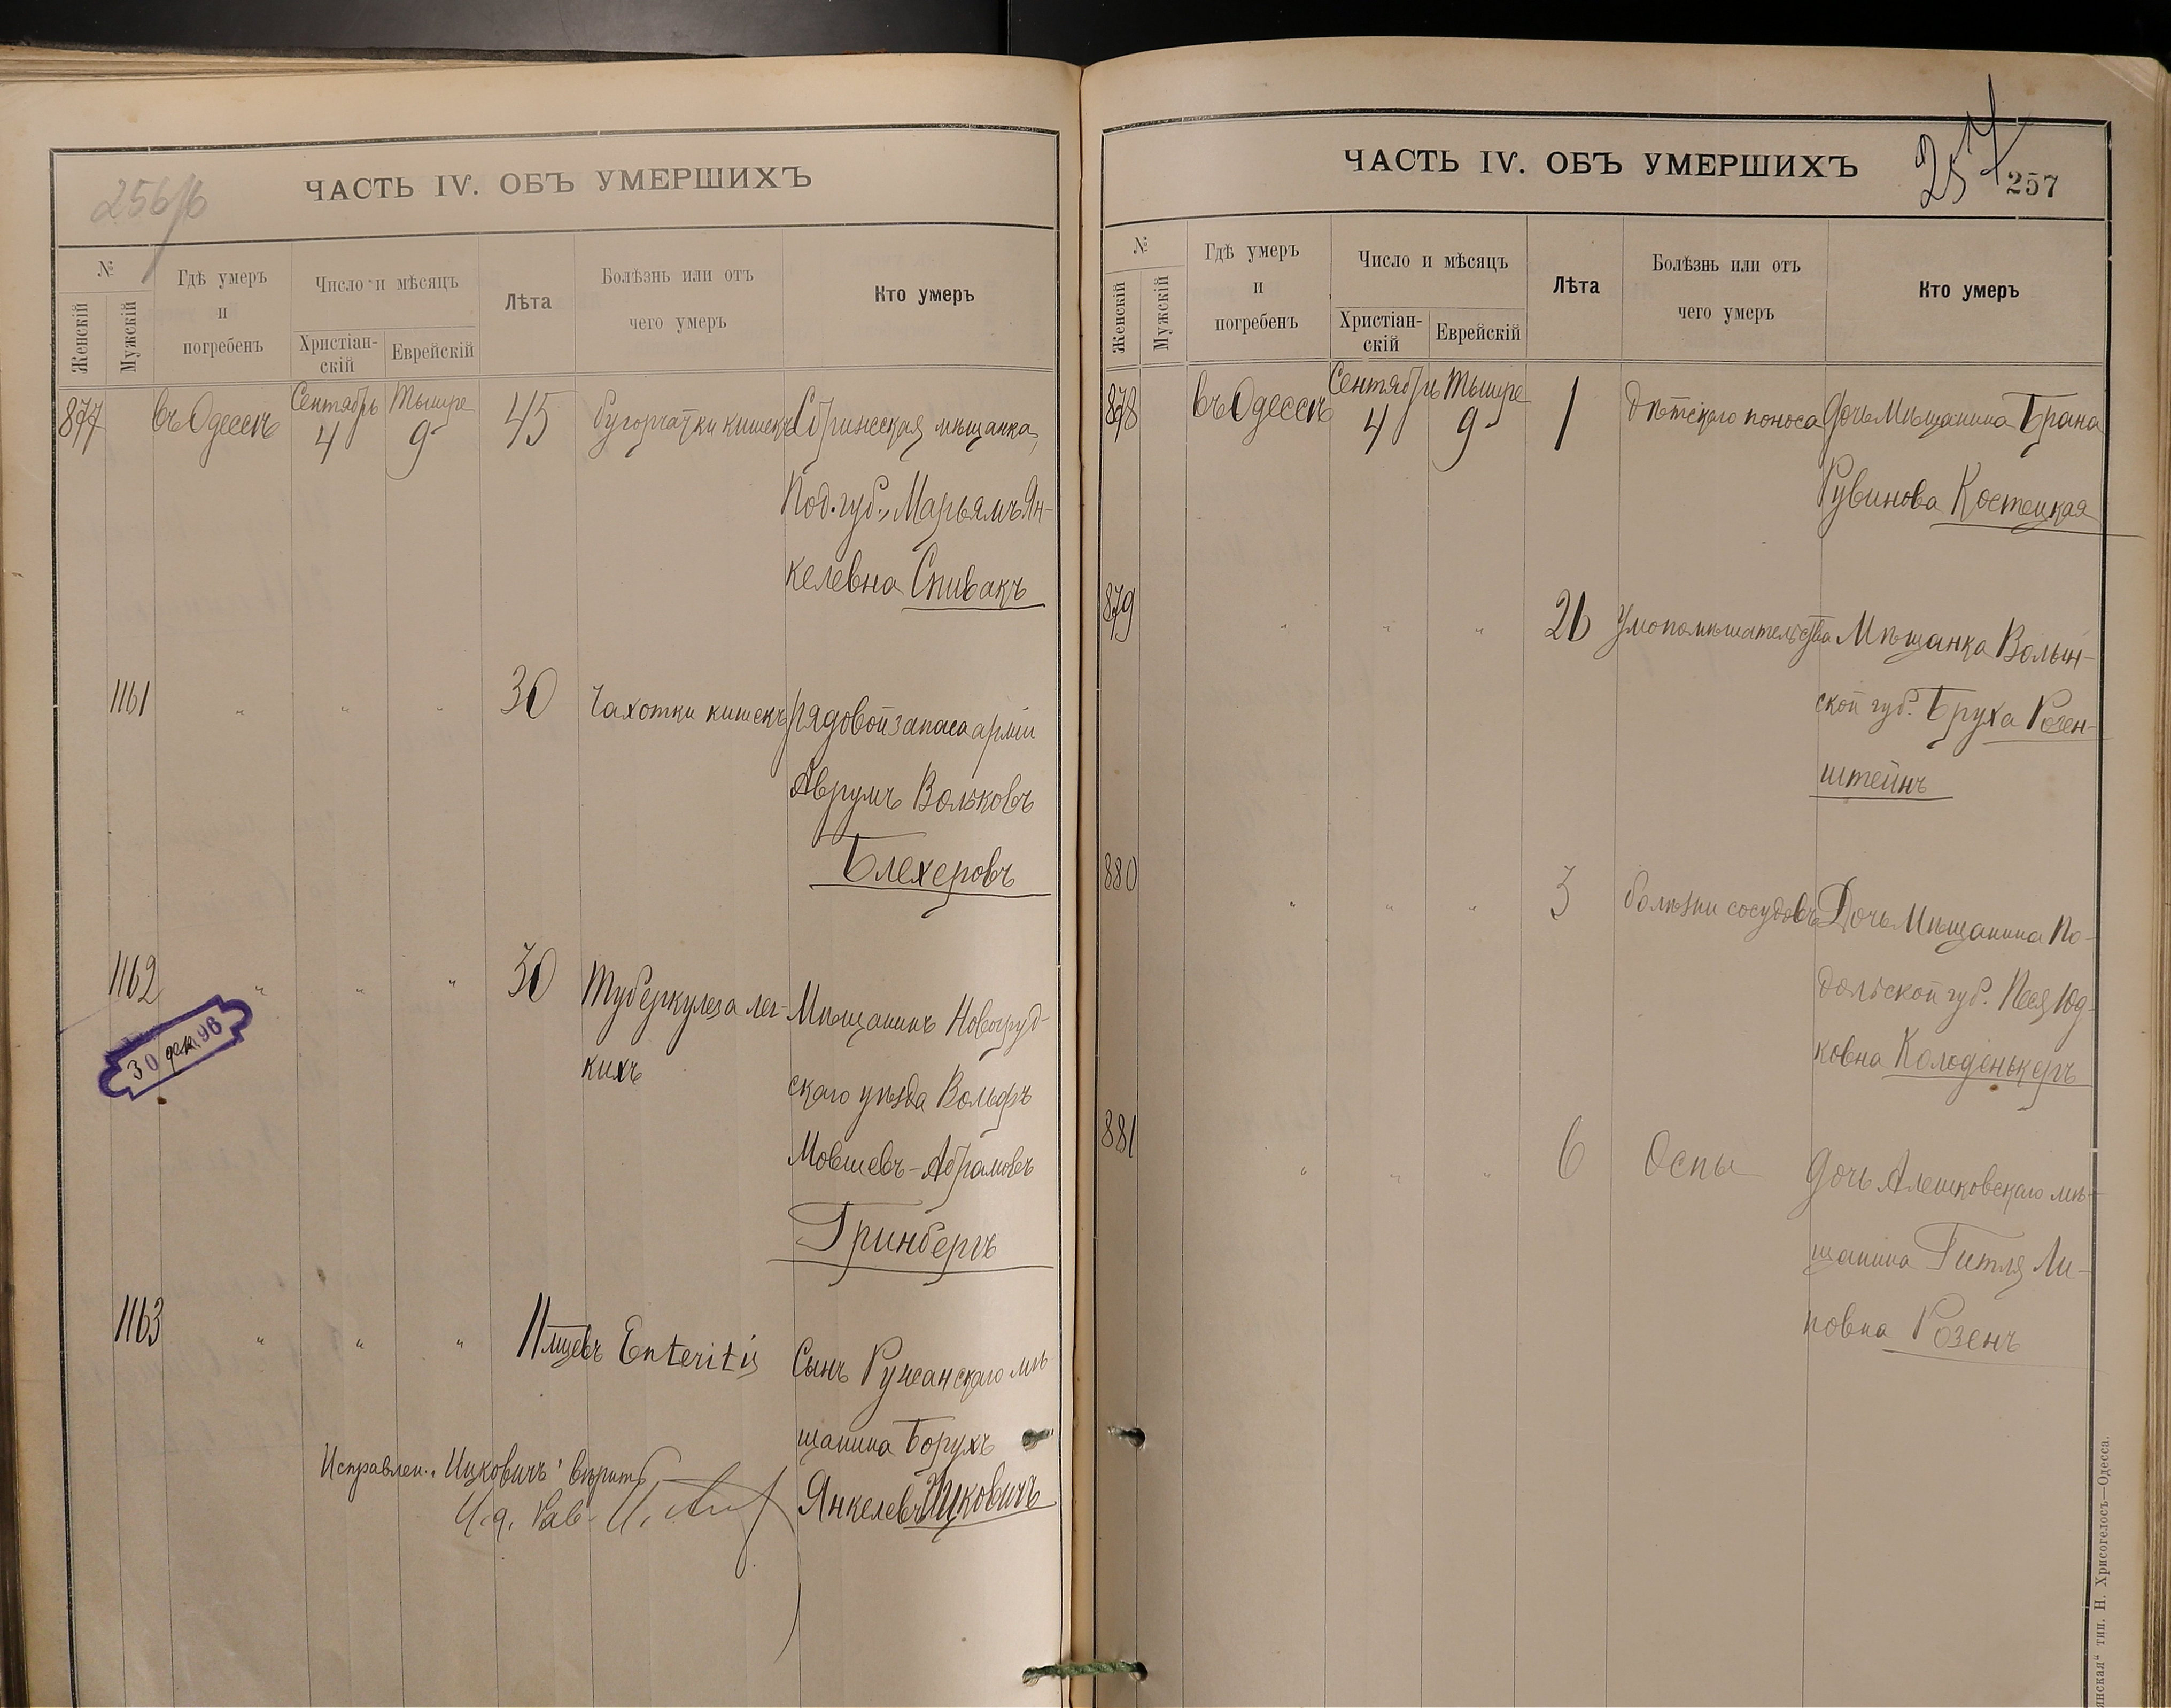 256/б
ЧАСТЬ IV. ОБЪ УМЕРШИХЪ
№
Женскій
Мужскій
Гдѣ умеръ
и
погребенъ
Число и мѣсяцъ
Христіан-
скій
Еврейскій
Лѣта
Болѣзнь или отъ
чего умеръ
Кто умеръ
877 въ Одессѣ Сентябрь 4 Тышре 9 45 бугорчатки кишекъ мѣщанка,
Под. губ., Марьямъ Ян-
келевна Спивакъ
1161 " " " 30 Чахотки кишекъ рядовой запаса арміи
Аврумъ Вольковъ
Блехеровъ
1162 " " " 30 Туберкулеза лег- Мѣщанинъ Новогруд-
кихъ
скаго уѣзда Вольфъ
Мовшевъ-Абрамовъ
Гринбергъ
30 дек. 96
1163 " " " 11 мцевъ Enteritis Сынъ Ружанскаго мѣ
щанина Борухъ
Янкелевъ Ицковичъ
Исправлен. „Ицковичъ" вѣрить
И. д. Рав. И.
ЧАСТЬ IV. ОБЪ УМЕРШИХЪ
257
257
№
Женскій
Мужскій
Гдѣ умеръ
и
погребенъ
Число и мѣсяцъ
Христіан-
скій
Еврейскій
Лѣта
Болѣзнь или отъ
чего умеръ
Кто умеръ
878 въ Одессѣ Сентябрь 4 Тышре 9 1 дѣтскаго поноса Дочь Мѣщанина Брана
Рувинова Костецкая
879 " " " 26 Умопомѣшательства Мѣщанка Волын-
ской губ. Бруха Розен-
штейнъ
880 " " " 3 болѣзни сосудовъ Дочь Мѣщанина По-
дольской губ. Песя Юд-
ковна Колоденькеръ
881 " " " 6 Оспы Дочь Алешковскаго мѣ-
щанина Гитля Ли-
повна Розенъ
тип. Н. Хрисогелосъ—Одесса.